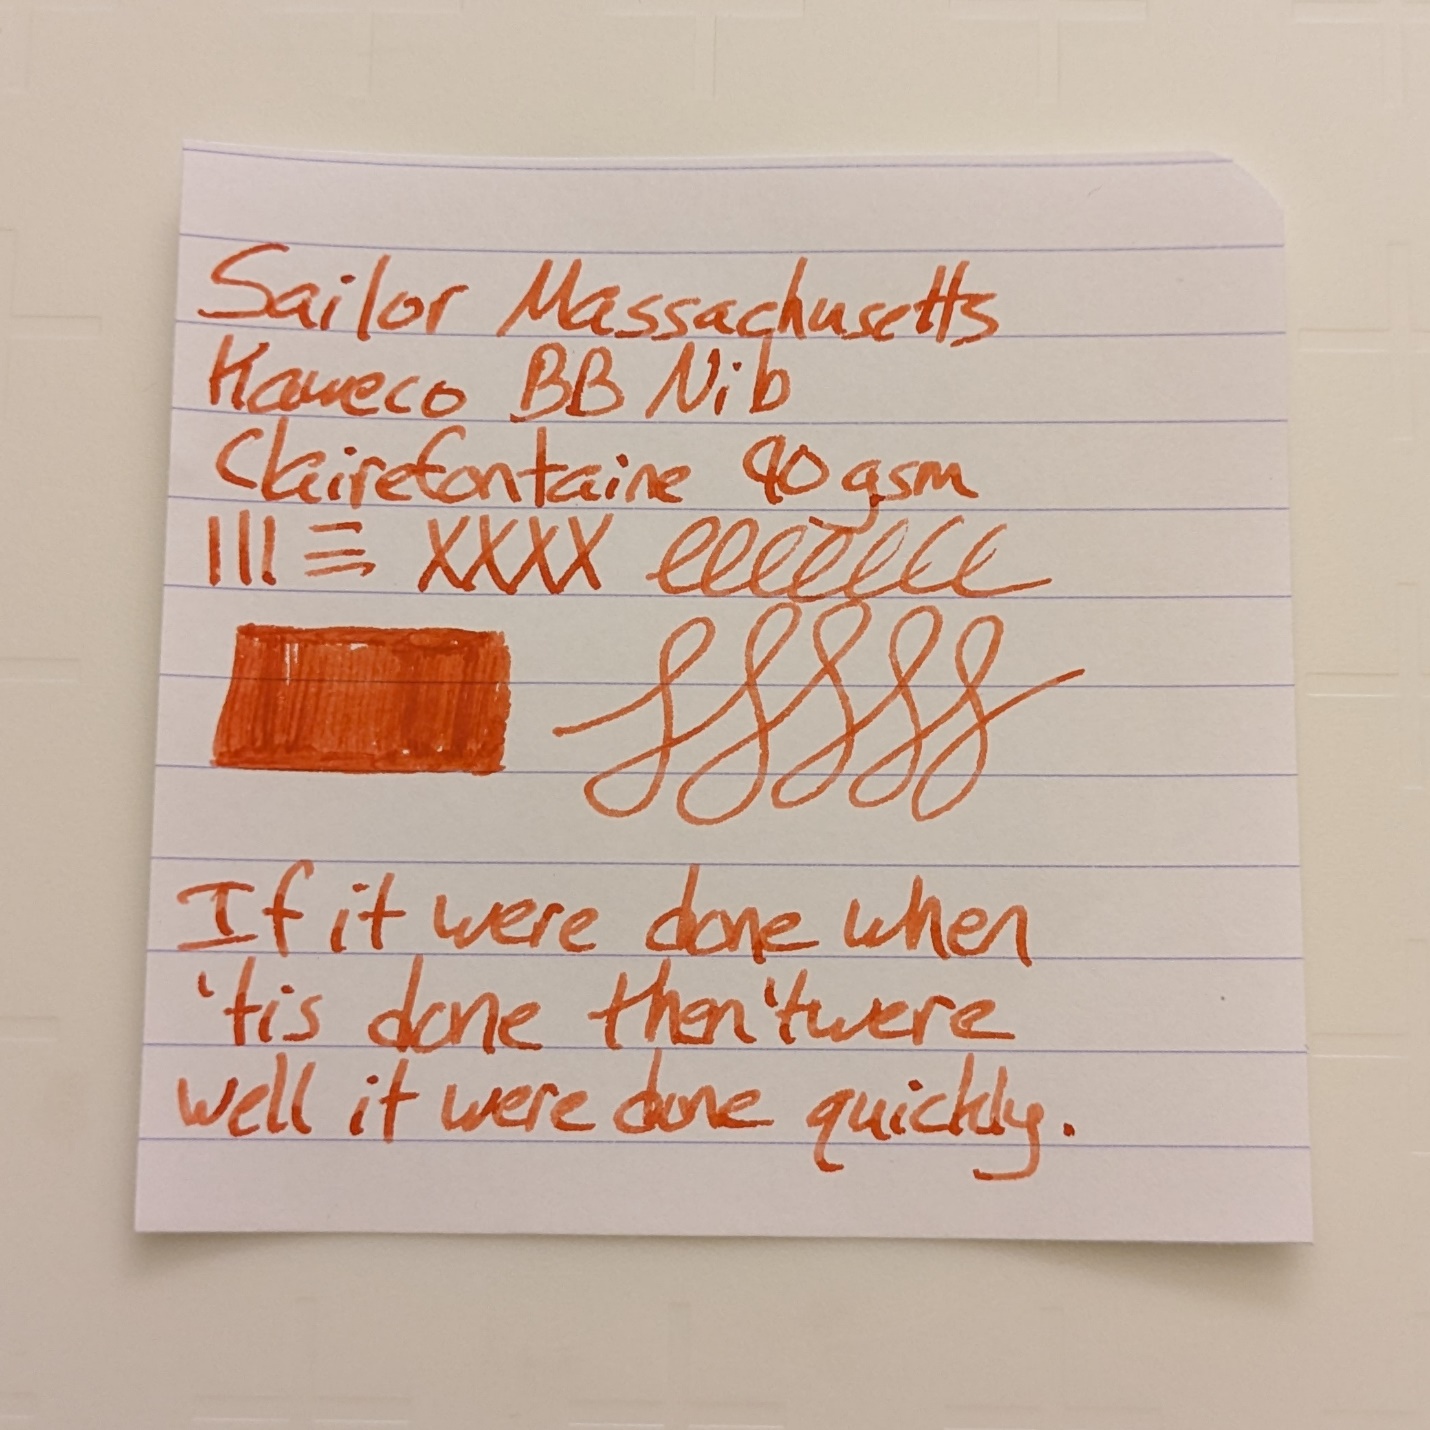 Sailor Massachusetts
Kaweco BB Nib
Clairefontaine 90gsm
XXXX
If it were done when
'tis done then 'twere
well it were done quickly.